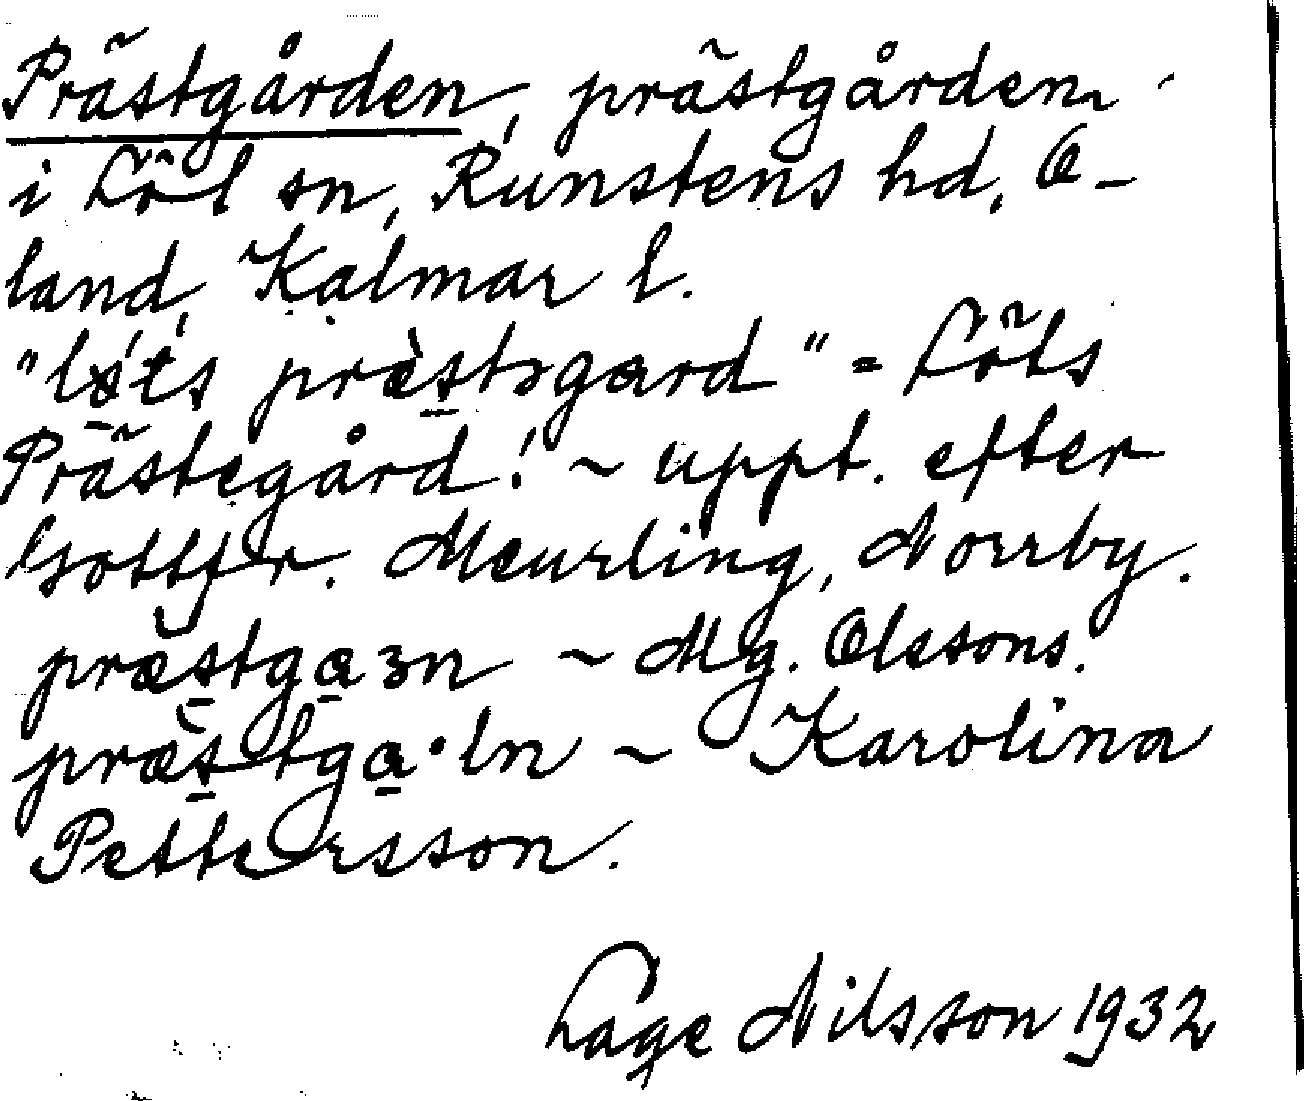 Prästgården, prästgården
i Löt sn, Runstens hd, Ö-
land, Kalmar l.
"løts præstəgard" = Löts
Prästegård! ~ uppt. efter
Gottfr. Meurling, Norrby.
præstgaɜn ~ Mg. Olssons.
præstga·ln ~ Karolina
Pettersson.
Lage Nilsson 1932